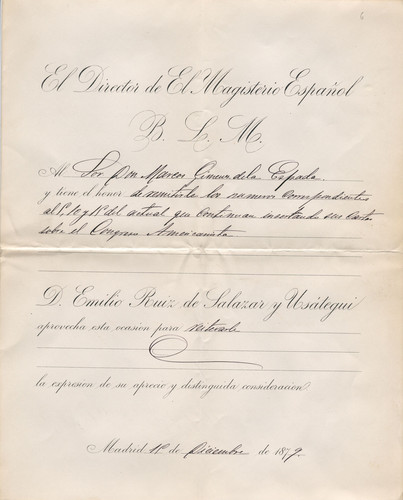 6
El Director de El Magisterio Español
B. L. M.
Al Sor Don Marcos Gimenez de la Espada
y tiene el honor de remitirle los numeros correspondientes
al 5, 10 y 15 del actual que continuan insertando sus cartas
sobre el Congreso Americanista
D. Emilio Ruiz de Salazar y Usátegui
aprovecha esta ocasión para reiterarle
la expresión de su aprecio y distinguida consideración.
Madrid de Diciembre de 1879.